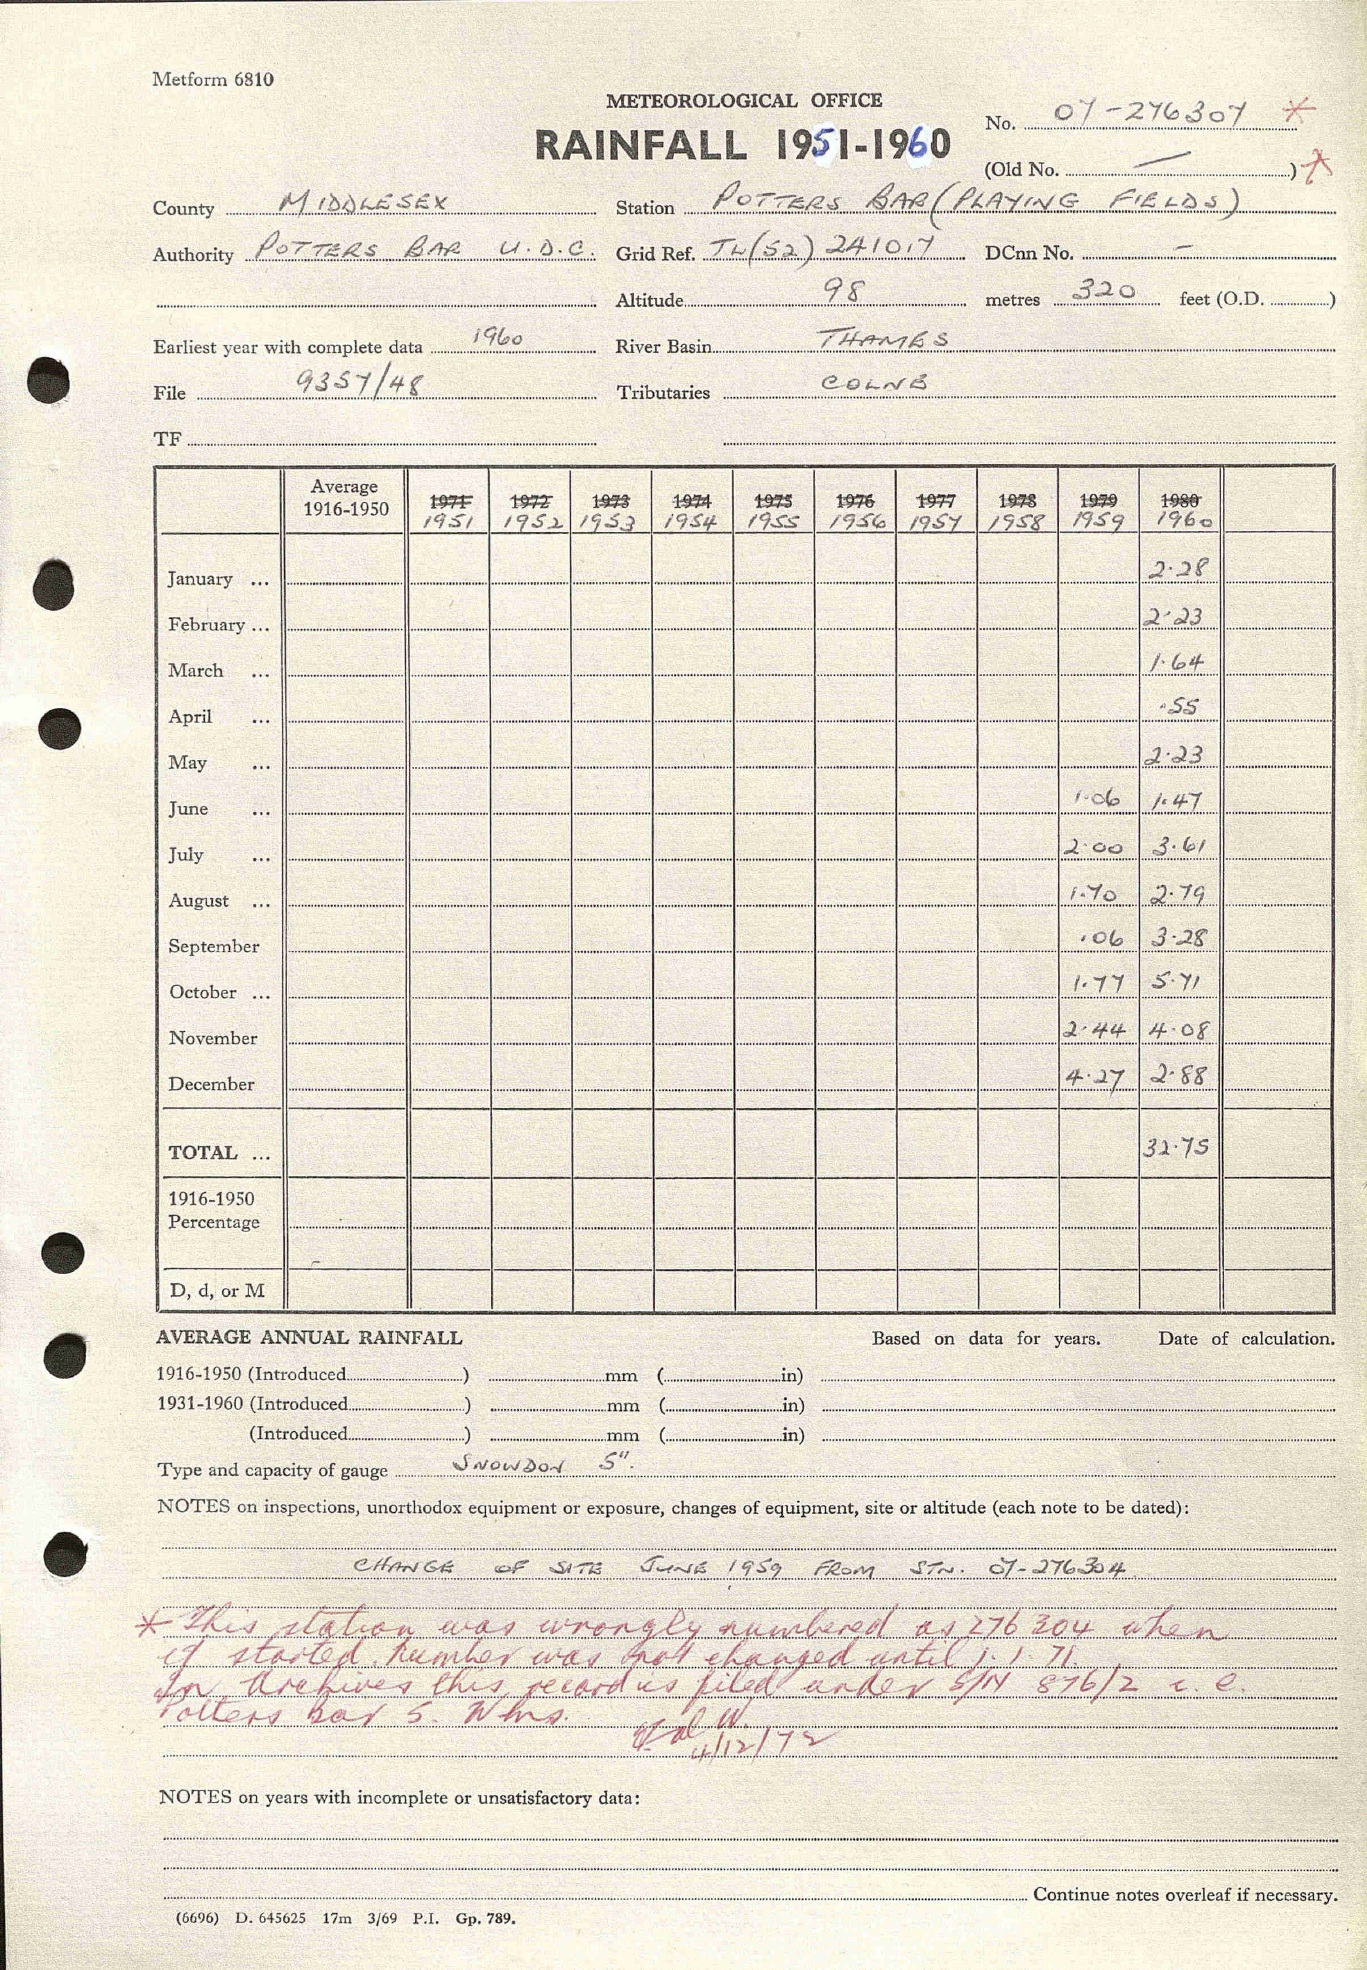 Metform 6810
METEOROLOGICAL OFFICE
RAINFALL 1951-1960
No. 07-276307 *
(Old No. — ) *
County MIDDLESEX Station POTTERS BAR (PLAYING FIELDS)
Authority POTTERS BAR U.D.C. Grid Ref. TL(52) 241017 DCnn No. –
Altitude 98 metres 320 feet (O.D. )
Earliest year with complete data 1960 River Basin THAMES
File 9357/48 Tributaries COLNE
TF
Average 1916-1950 1971 1972 1973 1974 1975 1976 1977 1978 1979 1980
1951 1952 1953 1954 1955 1956 1957 1958 1959 1960
January ... 2.28
February ... 2.23
March ... 1.64
April ... .55
May ... 2.23
June ... 1.06 1.47
July ... 2.00 3.61
August ... 1.70 2.79
September .06 3.28
October ... 1.77 5.71
November 2.44 4.08
December 4.27 2.88
TOTAL ... 32.75
1916-1950
Percentage
D, d, or M
AVERAGE ANNUAL RAINFALL Based on data for years. Date of calculation.
1916-1950 (Introduced ) mm ( in)
1931-1960 (Introduced ) mm ( in)
(Introduced ) mm ( in)
Type and capacity of gauge SNOWDON 5".
NOTES on inspections, unorthodox equipment or exposure, changes of equipment, site or altitude (each note to be dated):
CHANGE OF SITE JUNE 1959 FROM STN. 07-276304
* This station was wrongly numbered as 276304 when
it started. Number was not changed until 1.1.71.
In Archives this record is filed under S/N 876/2 i.e.
Potters Bar S. Wks.
4/12/72
NOTES on years with incomplete or unsatisfactory data:
Continue notes overleaf if necessary.
(6696) D. 645625 17m 3/69 P.I. Gp. 789.